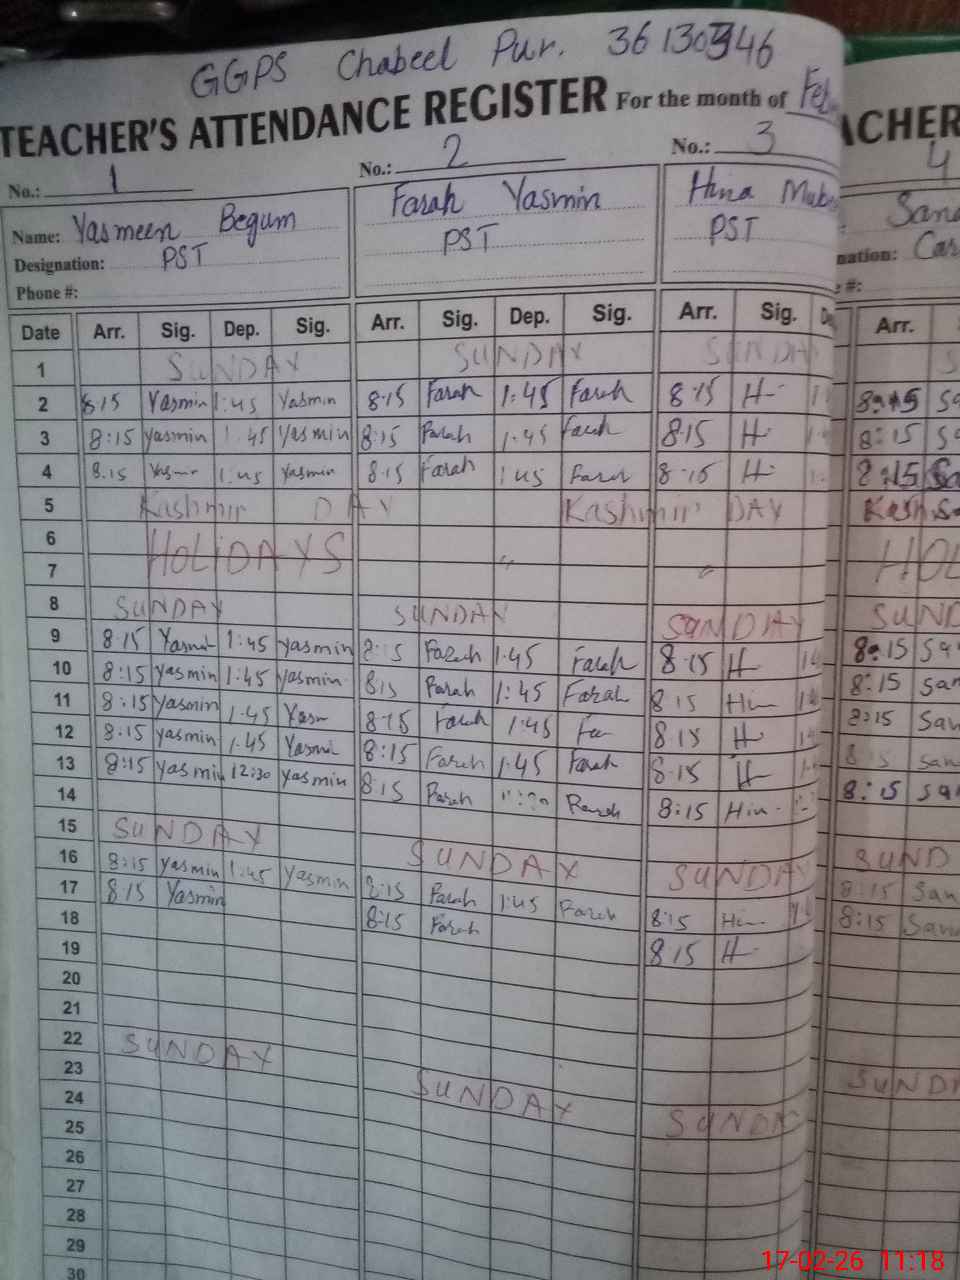 GGPS Chabeel Pur. 36130546
TEACHER'S ATTENDANCE REGISTER For the month of Feb
ACHER
No.: 1 No.: 2 No.: 3 4
Name: Yasmeen Begum Farah Yasmin Hina
Designation: PST PST PST nation: Car
Phone #: e #:
Date Arr. Sig. Dep. Sig. Arr. Sig. Dep. Sig. Arr. Sig. Arr.
1 SUNDAY SUNDAY SUNDAY
2 8:15 Yasmin 1:45 Yasmin 8:15 Farah 1:45 Farah 8:15 H 8:15 Sa
3 8:15 Yasmin 1:45 Yasmin 8:15 Farah 1:45 Farah 8:15 H 8:15 Sa
4 8:15 Yasmin 1:45 Yasmin 8:15 Farah 1:45 Farah 8:15 H 8:15 Sa
5 Kashmir DAY Kashmir DAY Kash
6 HOLIDAYS HOL
7 " "
8 SUNDAY SUNDAY SUNDAY SUND
9 8:15 Yasmin 1:45 Yasmin 8:15 Farah 1:45 Farah 8:15 H 8:15 Sa
10 8:15 Yasmin 1:45 Yasmin 8:15 Farah 1:45 Farah 8:15 Hin 8:15 San
11 8:15 Yasmin 1:45 Yasm 8:15 Farah 1:45 Fa 8:15 H 8:15 San
12 8:15 Yasmin 1:45 Yasmin 8:15 Farah 1:45 Farah 8:15 H 8:15 San
13 8:15 Yasmin 12:30 Yasmin 8:15 Farah Farah 8:15 Hin 8:15 Sa
14
15 SUNDAY SUNDAY SUNDAY SUND
16 8:15 Yasmin 1:45 Yasmin 8:15 Farah 1:45 Farah 8:15 Hin 8:15 San
17 8:15 Yasmin 8:15 Farah 8:15 H 8:15 San
18
19
20
21
22 SUNDAY SUNDAY SUNDAY SUND
23
24
25
26
27
28
29
30
17-02-26 11:18